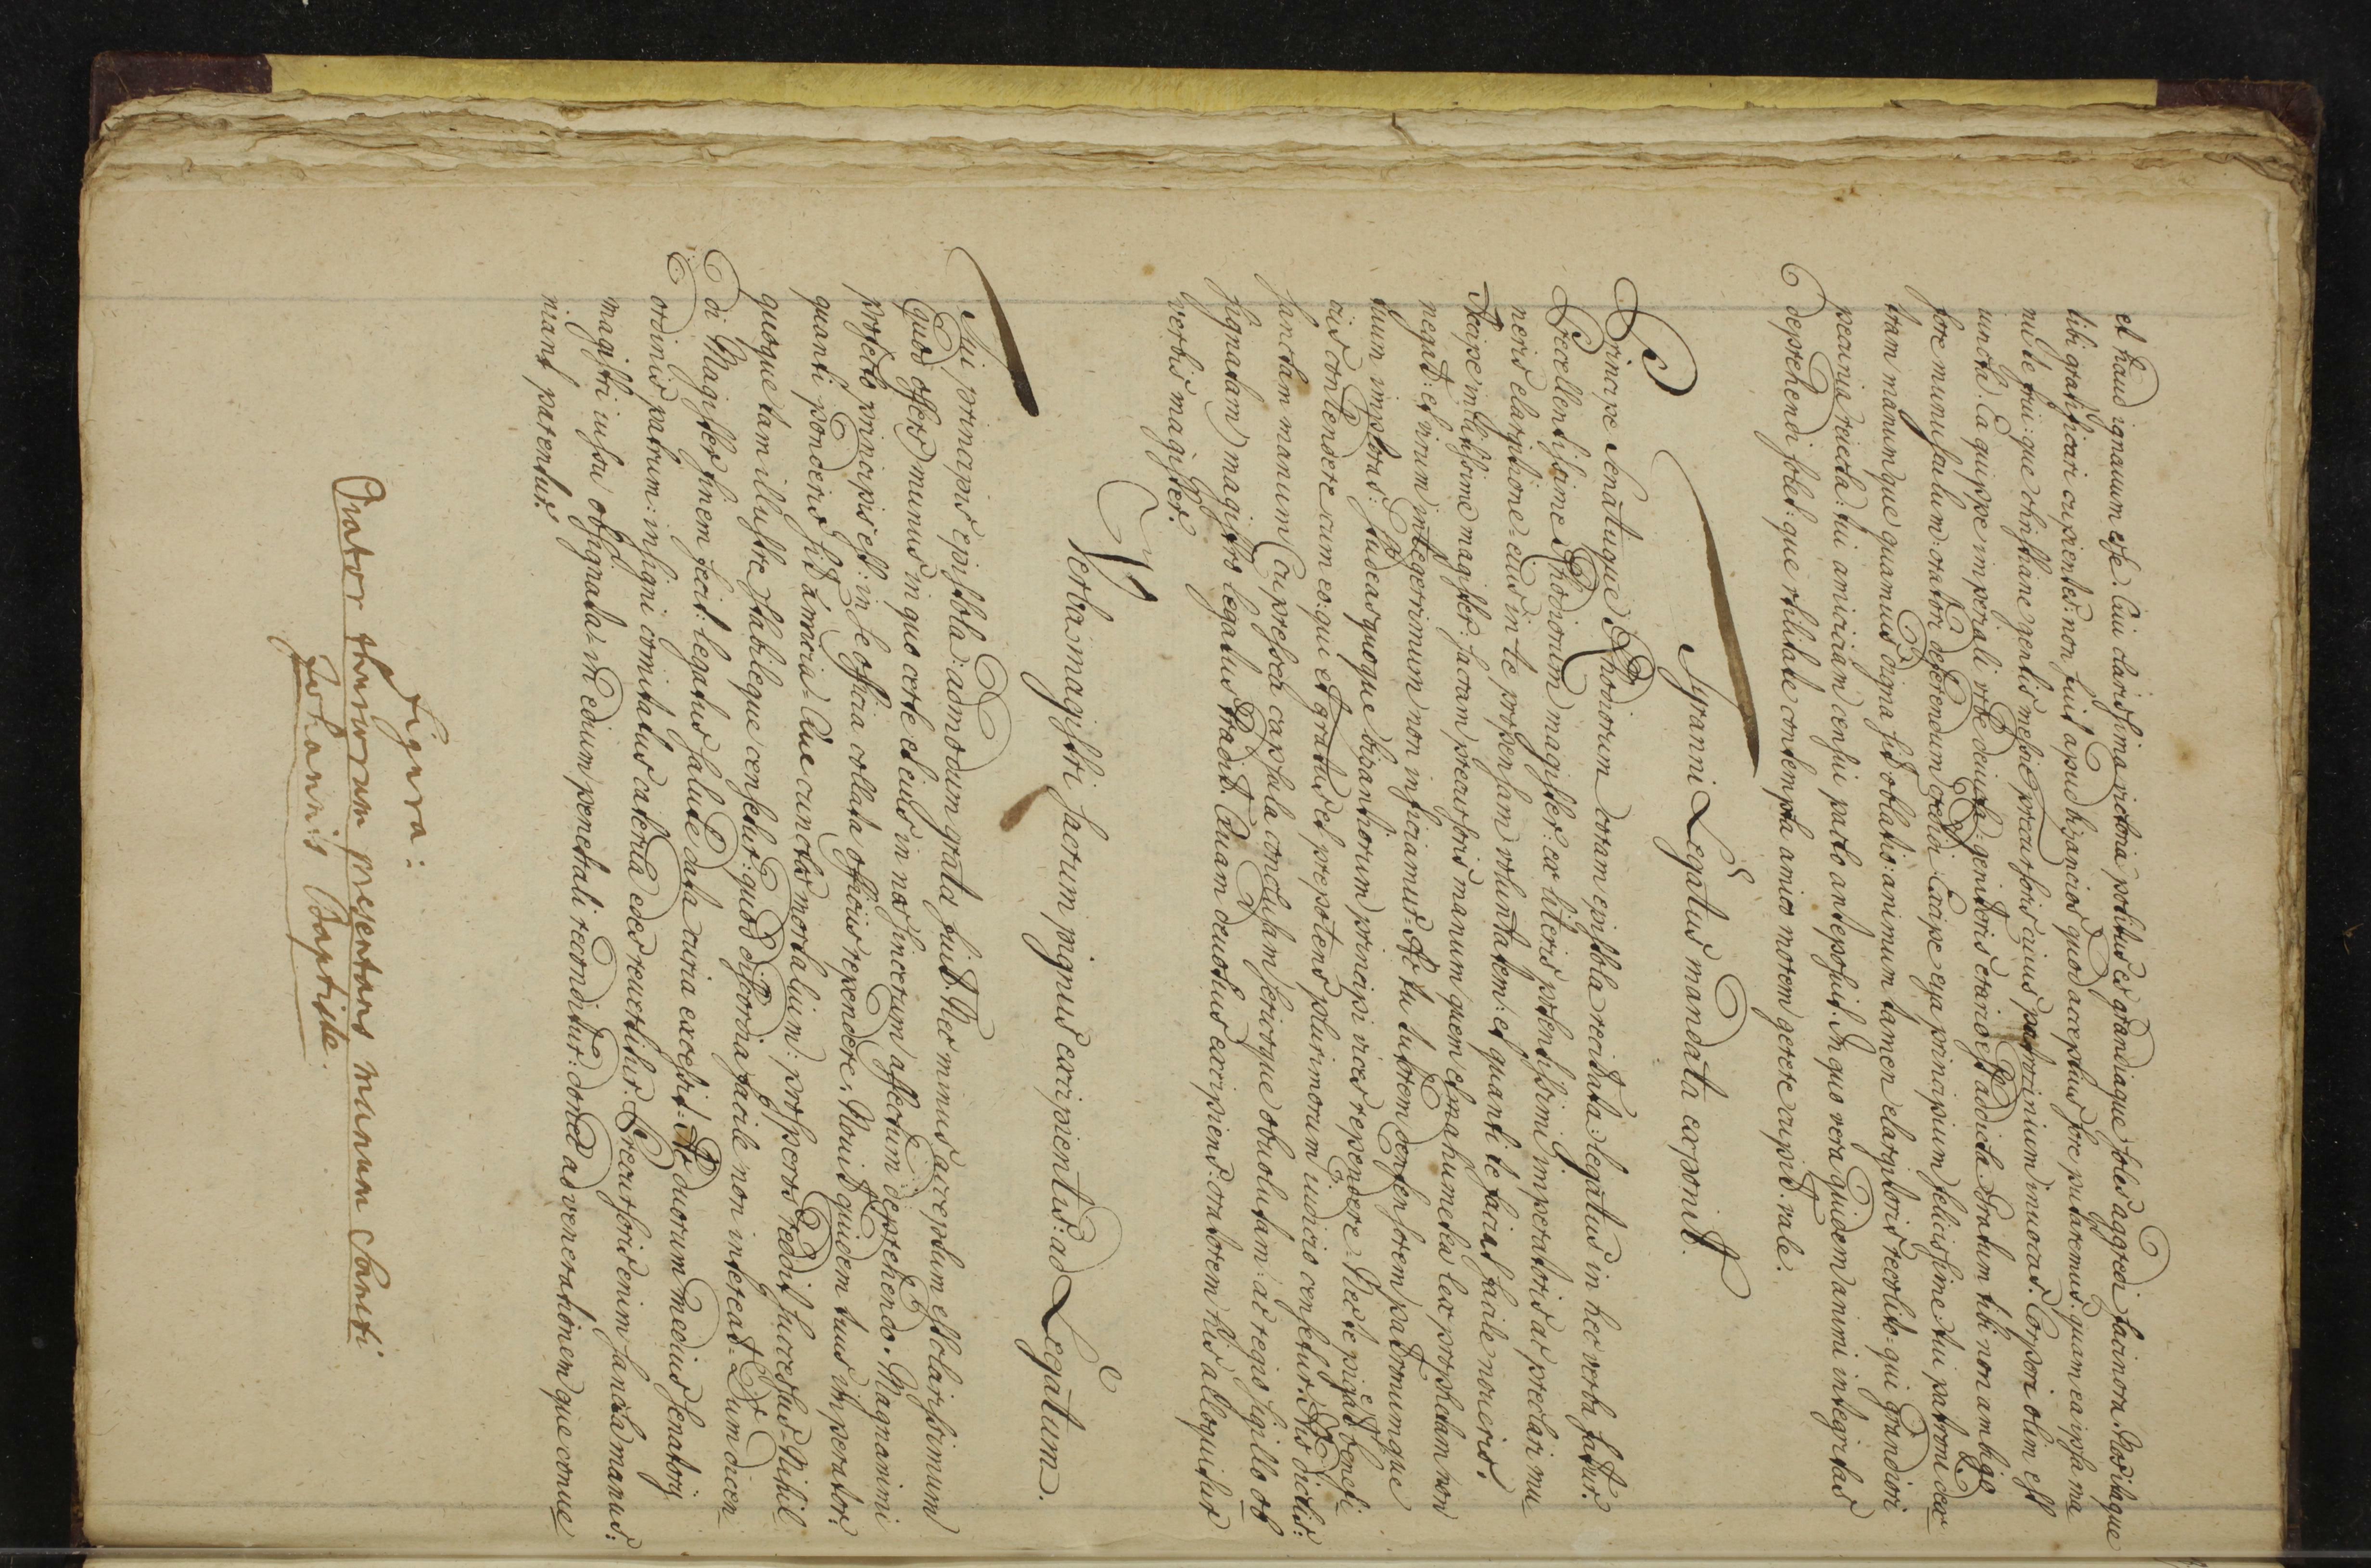 et haud ignauum esse. Cui clarissima victoria politus es grandiaque soles aggredi facinora. Nos itaque
tibi gratificari cupientes: non fuit apud bizancios quod acceptius fore putaremus: quam ea ipsa ma
nu te frui: que christiane gentis messie precursoris cuius patrocinium inuocas. Corpori olim est
iuncta. Ea quippe imperiali vrbe deuicta: genitoris erario est addicta. Gratum tibi non ambige
fore munusculum: orator deferendum credidi. Accipe eya principium felicissime tui patroni dex
tram manum: que quamuis digna sit oblatio: animum tamen elargitoris recolito: qui grandiori
pecunia reiecta: tui amiciciam censui pacto anteposuit. In quo vera quidem animi integritas
deprehendi solet: que vtilitate contempta amico morem gerere cupit. vale.
Tyranni Legatus mandata exponit.
Principe Senatuque Rhodiorum coram epistola recitata: legatus in hec verba fatur.
Precellentissime Rhodiorum magister: ex literis potentissimi imperatoris ac preclari mu
neris elargitione eius in te propensam voluntatem: et quanti te faciat facile noueris.
Accipe mitissime magister: sacram precursoris manum quem et mahumeta lex prophetam non
negat: et virum integerrimum non inficiamur. At tu tutorem defensorem patronumque
tuum imploras: studeas quoque bizantiorum principi vices rependere. Nec te pigeat benefi
ciis contendere cum eo: qui et gratus et prepotens plurimorum iudicio censetur. His dictis:
sanctam manum Cupressea capsula conclusam sericoque obuolutam: ac regio sigillo ob
signatam magistro legatus tradit. Quam deuotius excipiens: oratorem his alloquitur
verbis magister.
Verba magistri sacrum pignus excipientis: ad Legatum.
Tui principis epistola: admodum grata fuit. Nec minus acceptum est clarissimum
quod offers munus in quo certe et eius in nos sincerum affectum deprehendo. Magnanimi
profecto principis est: in se officia collata officiis rependere. Nouit quidem tuus imperator:
quanti ponderis sit amicia. Que cunctis mortalium: prosperos reddit successus. Nihil
quoque tam illustre stabileque censetur: quod discordia facile non intereat. Dum dicen
di Magister finem fecit: legatus salute data curia excessit. At duorum medius senatorii
ordinis patrum: insigni comitatus caterua edes reuertitur. Precursoris enim sancta manus:
magistri iussu obsignata: in edium penetrali reconditur: donec ad venerationem que conue
niant parentur.
Figura:
Orator thurcorum presentans manum Sancti
Johannis Baptiste.